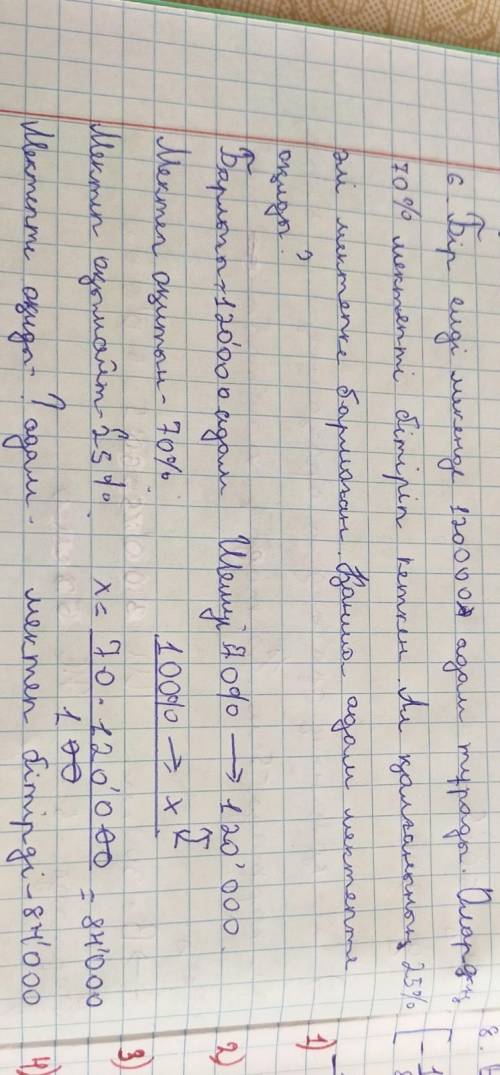 6. Бір елді мекенде 120000 адам тұрады. Олардың
70% мектепті бітіріп кеткен. Ал қалғанының 25%
әлі мектепке бармаған. Қанша адам мектепте
оқиды?
Барлығы - 120'000 адам Шешуі 70% → 120'000.
Мектеп оқитын - 70% 100% → x
Мектеп оқымайт - 25% x = 70 · 120'000 = 84'000
100
Мектепте оқиды - ? адам. мектеп бітірді - 84'000
8.
1)
2)
3)
4)